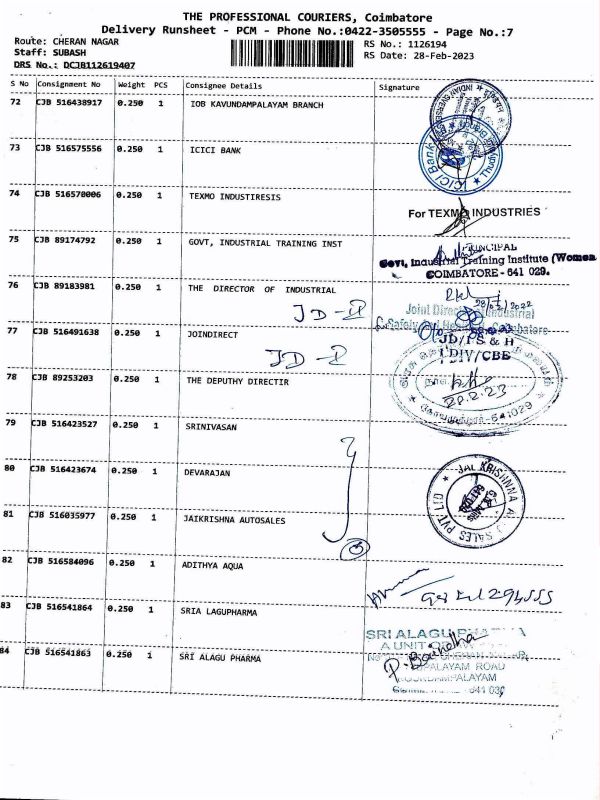 THE PROFESSIONAL COURIERS, Coimbatore
Delivery Runsheet - PCM - Phone No.:0422-3505555 - Page No.:7
Route: CHERAN NAGAR
RS No.: 1126194
Staff: SUBASH
RS Date: 28-Feb-2023
DRS No.: DCJB112619407
S No Consignment No Weight PCS Consignee Details Signature
72 CJB 516438917 0.250 1 IOB KAVUNDAMPALAYAM BRANCH
73 CJB 516575556 0.250 1 ICICI BANK
ICICI Bank
74 CJB 516570006 0.250 1 TEXMO INDUSTIRESIS
For TEXMO INDUSTRIES
75 CJB 89174792 0.250 1 GOVT, INDUSTRIAL TRAINING INST
PRINCIPAL
Govt. Industrial Training Institute (Women
COIMBATORE - 641 029.
76 CJB 89183981 0.250 1 THE DIRECTOR OF INDUSTRIAL
JD-II
Joint Director Industrial
Safety Coimbatore
77 CJB 516491638 0.250 1 JOINDIRECT
JD-I
JD/IS & H
I DIV/CBE
78 CJB 89253203 0.250 1 THE DEPUTHY DIRECTIR
20.2.23
641029
79 CJB 516423527 0.250 1 SRINIVASAN
80 CJB 516423674 0.250 1 DEVARAJAN
81 CJB 516035977 0.250 1 JAIKRISHNA AUTOSALES
JAI KRISHNA AUTO SALES PVT LTD
82 CJB 516584096 0.250 1 ADITHYA AQUA
83 CJB 516541864 0.250 1 SRIA LAGUPHARMA
SRI ALAGU PHARMA
A UNIT OF
84 CJB 516541863 0.250 1 SRI ALAGU PHARMA
PALAYAM ROAD
641 030